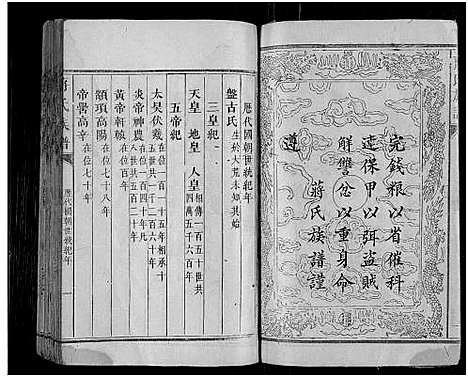 完錢糧以省催科
連保甲以弭盜賊
解讐忿以重身命
蔣氏族譜謹
遵
歷代國朝世統紀年
盤古氏 生於大荒未知其始
三皇紀
天皇 地皇 人皇 相傳一百五十世共四萬五千六百年
五帝紀
太昊伏羲 在位一百一十五年相承十五世共一千二百六十年
炎帝神農 在位一百四十年傳八世共五百二十年
黃帝軒轅 在位百年
顓頊高陽 在位七十八年
帝嚳高辛 在位七十年
蔣氏族譜
歷代國朝世統紀年
一